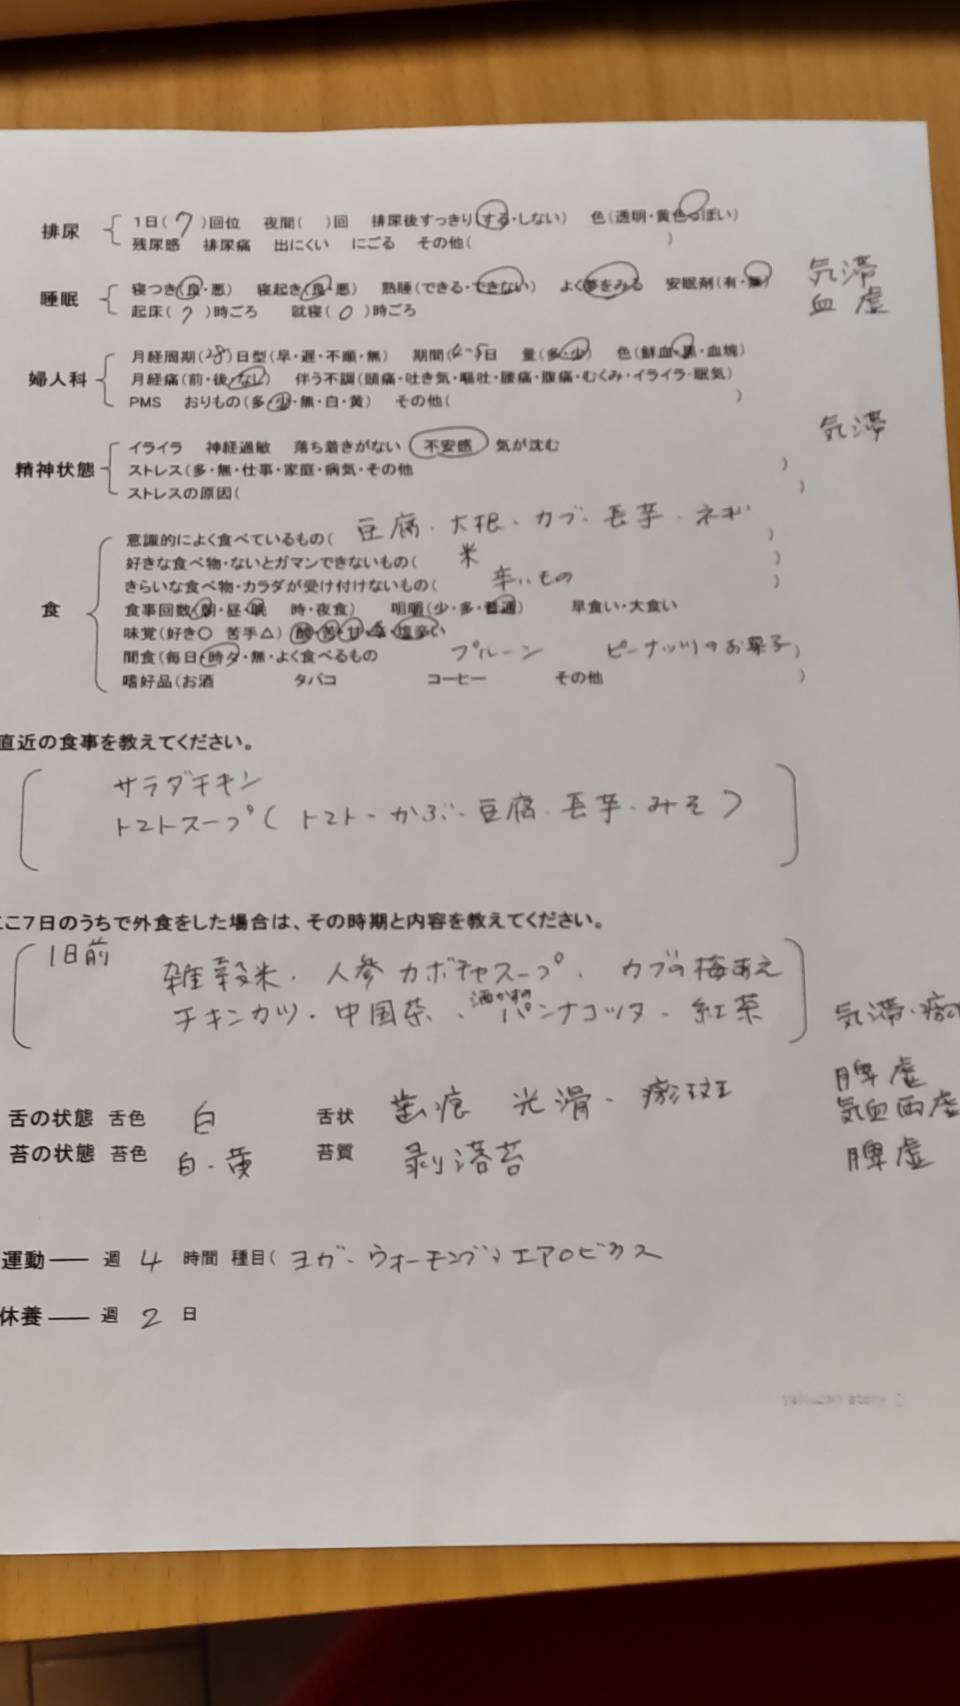 排尿 1日(7)回位 夜間( )回 排尿後すっきり(する・しない) 色(透明・黄色っぽい)
残尿感 排尿痛 出にくい にごる その他( )
睡眠 寝つき(良・悪) 寝起き(良・悪) 熟睡(できる・できない) よく夢をみる 安眠剤(有・無) 気滞
起床(7)時ごろ 就寝(0)時ごろ 血虚
婦人科 月経周期(28)日型(早・遅・不順・無) 期間(4-5)日 量(多・少) 色(鮮血・黒・血塊)
月経痛(前・後・なし) 伴う不調(頭痛・吐き気・嘔吐・腰痛・腹痛・むくみ・イライラ・眠気)
PMS おりもの(多・少・無・白・黄) その他( )
気滞
精神状態 イライラ 神経過敏 落ち着きがない 不安感 気が沈む
ストレス(多・無・仕事・家庭・病気・その他 )
ストレスの原因( )
食 意識的によく食べているもの( 豆腐・大根・カブ・長芋・ネギ )
好きな食べ物・ないとガマンできないもの( 米 )
きらいな食べ物・カラダが受け付けないもの( 辛いもの )
食事回数(朝・昼・晩 時・夜食) 咀嚼(少・多・普通) 早食い・大食い
味覚(好き○ 苦手△)(酸・苦・甘・辛・塩辛い
間食(毎日・時々・無・よく食べるもの プルーン ピーナッツのお菓子)
嗜好品(お酒 タバコ コーヒー その他 )
直近の食事を教えてください。
サラダチキン
トマトスープ(トマト・かぶ・豆腐・長芋・みそ)
ここ7日のうちで外食をした場合は、その時期と内容を教えてください。
1日前
雑穀米・人参カボチャスープ・カブの梅あえ
チキンカツ・中国茶・酒かすのパンナコッタ・紅茶 気滞・瘀
脾虚
舌の状態 舌色 白 舌状 歯痕 光滑・瘀斑 気血両虚
苔の状態 苔色 白・黄 苔質 剥落苔 脾虚
運動 週 4 時間 種目( ヨガ・ウォーキング・エアロビクス
休養 週 2 日